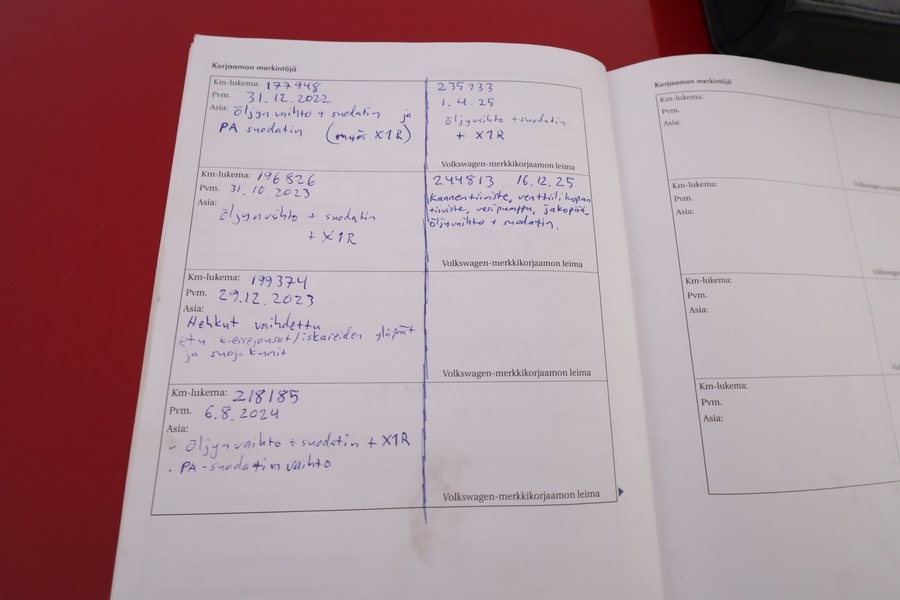 Korjaamon merkintöjä
Km-lukema: 177948
Pvm. 31.12.2022
Asia: öljyn vaihto + suodatin ja
PA suodatin (myös X1R)
Km-lukema: 196826
Pvm. 31.10.2023
Asia:
öljynvaihto + suodatin
+ X1R
Km-lukema: 199374
Pvm. 29.12.2023
Asia:
Hehkut vaihdettu
etu kierrejouset/iskareiden yläpäät
ja suojakumit
Km-lukema: 218185
Pvm. 6.8.2024
Asia:
- öljyn vaihto + suodatin + X1R
. PA-suodatin vaihto
235933
1.4.25
öljyvaihto + suodatin
+ X1R
Volkswagen-merkkikorjaamon leima
244813 16.12.25
Kannentiiviste, venttiilikopan
tiiviste, vesipumppu, jakopää-
öljyvaihto + suodatin.
Volkswagen-merkkikorjaamon leima
Volkswagen-merkkikorjaamon leima
Volkswagen-merkkikorjaamon leima
Korjaamon merkintöjä
Km-lukema:
Pvm.
Asia:
Km-lukema:
Pvm.
Asia:
Km-lukema:
Pvm.
Asia:
Km-lukema:
Pvm.
Asia: